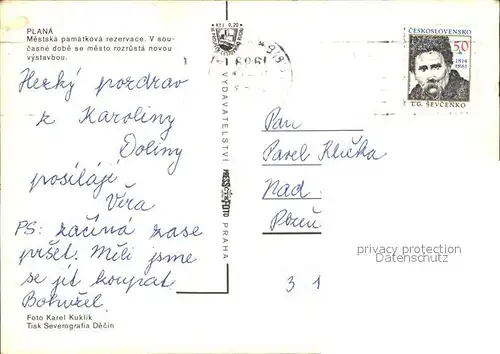 PLANÁ
Městská památková rezervace. V sou-
časné době se město rozrůstá novou
výstavbou.
Hezký pozdrav
z Karoliny
Doliny
posílají
Věra
PS: začíná zase
pršet. Měli jsme
se jít koupat.
Bohužel.
Foto Karel Kuklík
Tisk Severografia Děčín
Kčs 0,20
VYDAVATELSTVÍ
PRAHA
ČESKOSLOVENSKO
50
1814
1861
T.G. ŠEVČENKO
Pan
Pavel Klička
Nad
Plzeň
privacy protection
Datenschutz
3 1